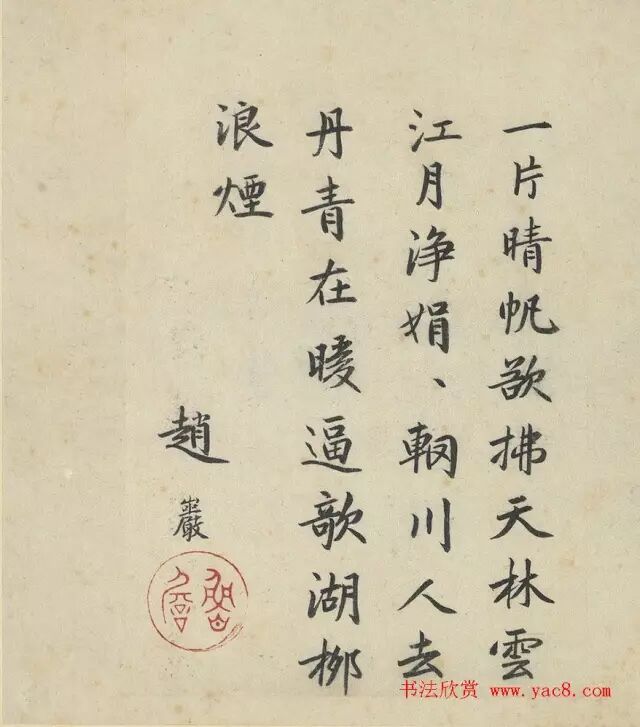 一片晴帆欲拂天林雲
江月淨娟、輞川人去
丹青在暖逼欹湖柳
浪煙
趙巖
书法欣赏 www.yac8.com